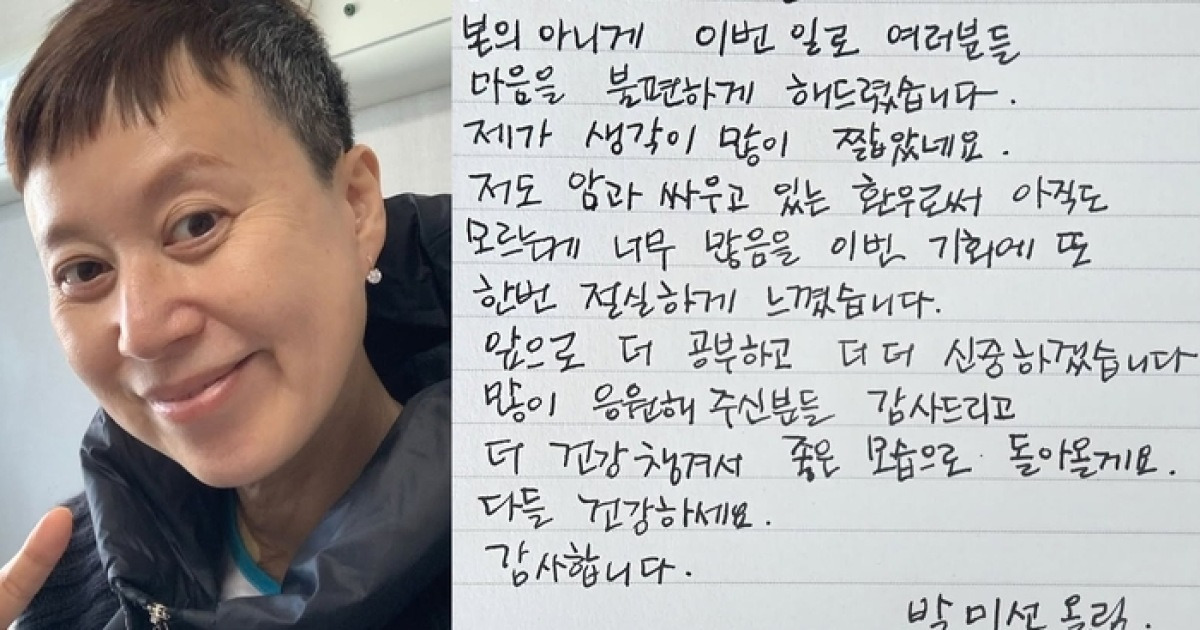 본의 아니게 이번 일로 여러분들
마음을 불편하게 해드렸습니다.
제가 생각이 많이 짧았네요.
저도 암과 싸우고 있는 환우로써 아직도
모르는게 너무 많음을 이번 기회에 또
한번 절실하게 느꼈습니다.
앞으로 더 공부하고 더 더 신중하겠습니다
많이 응원해 주신분들 감사드리고
더 건강 챙겨서 좋은 모습으로 돌아올게요.
다들 건강하세요.
감사합니다.
박미선 올림.